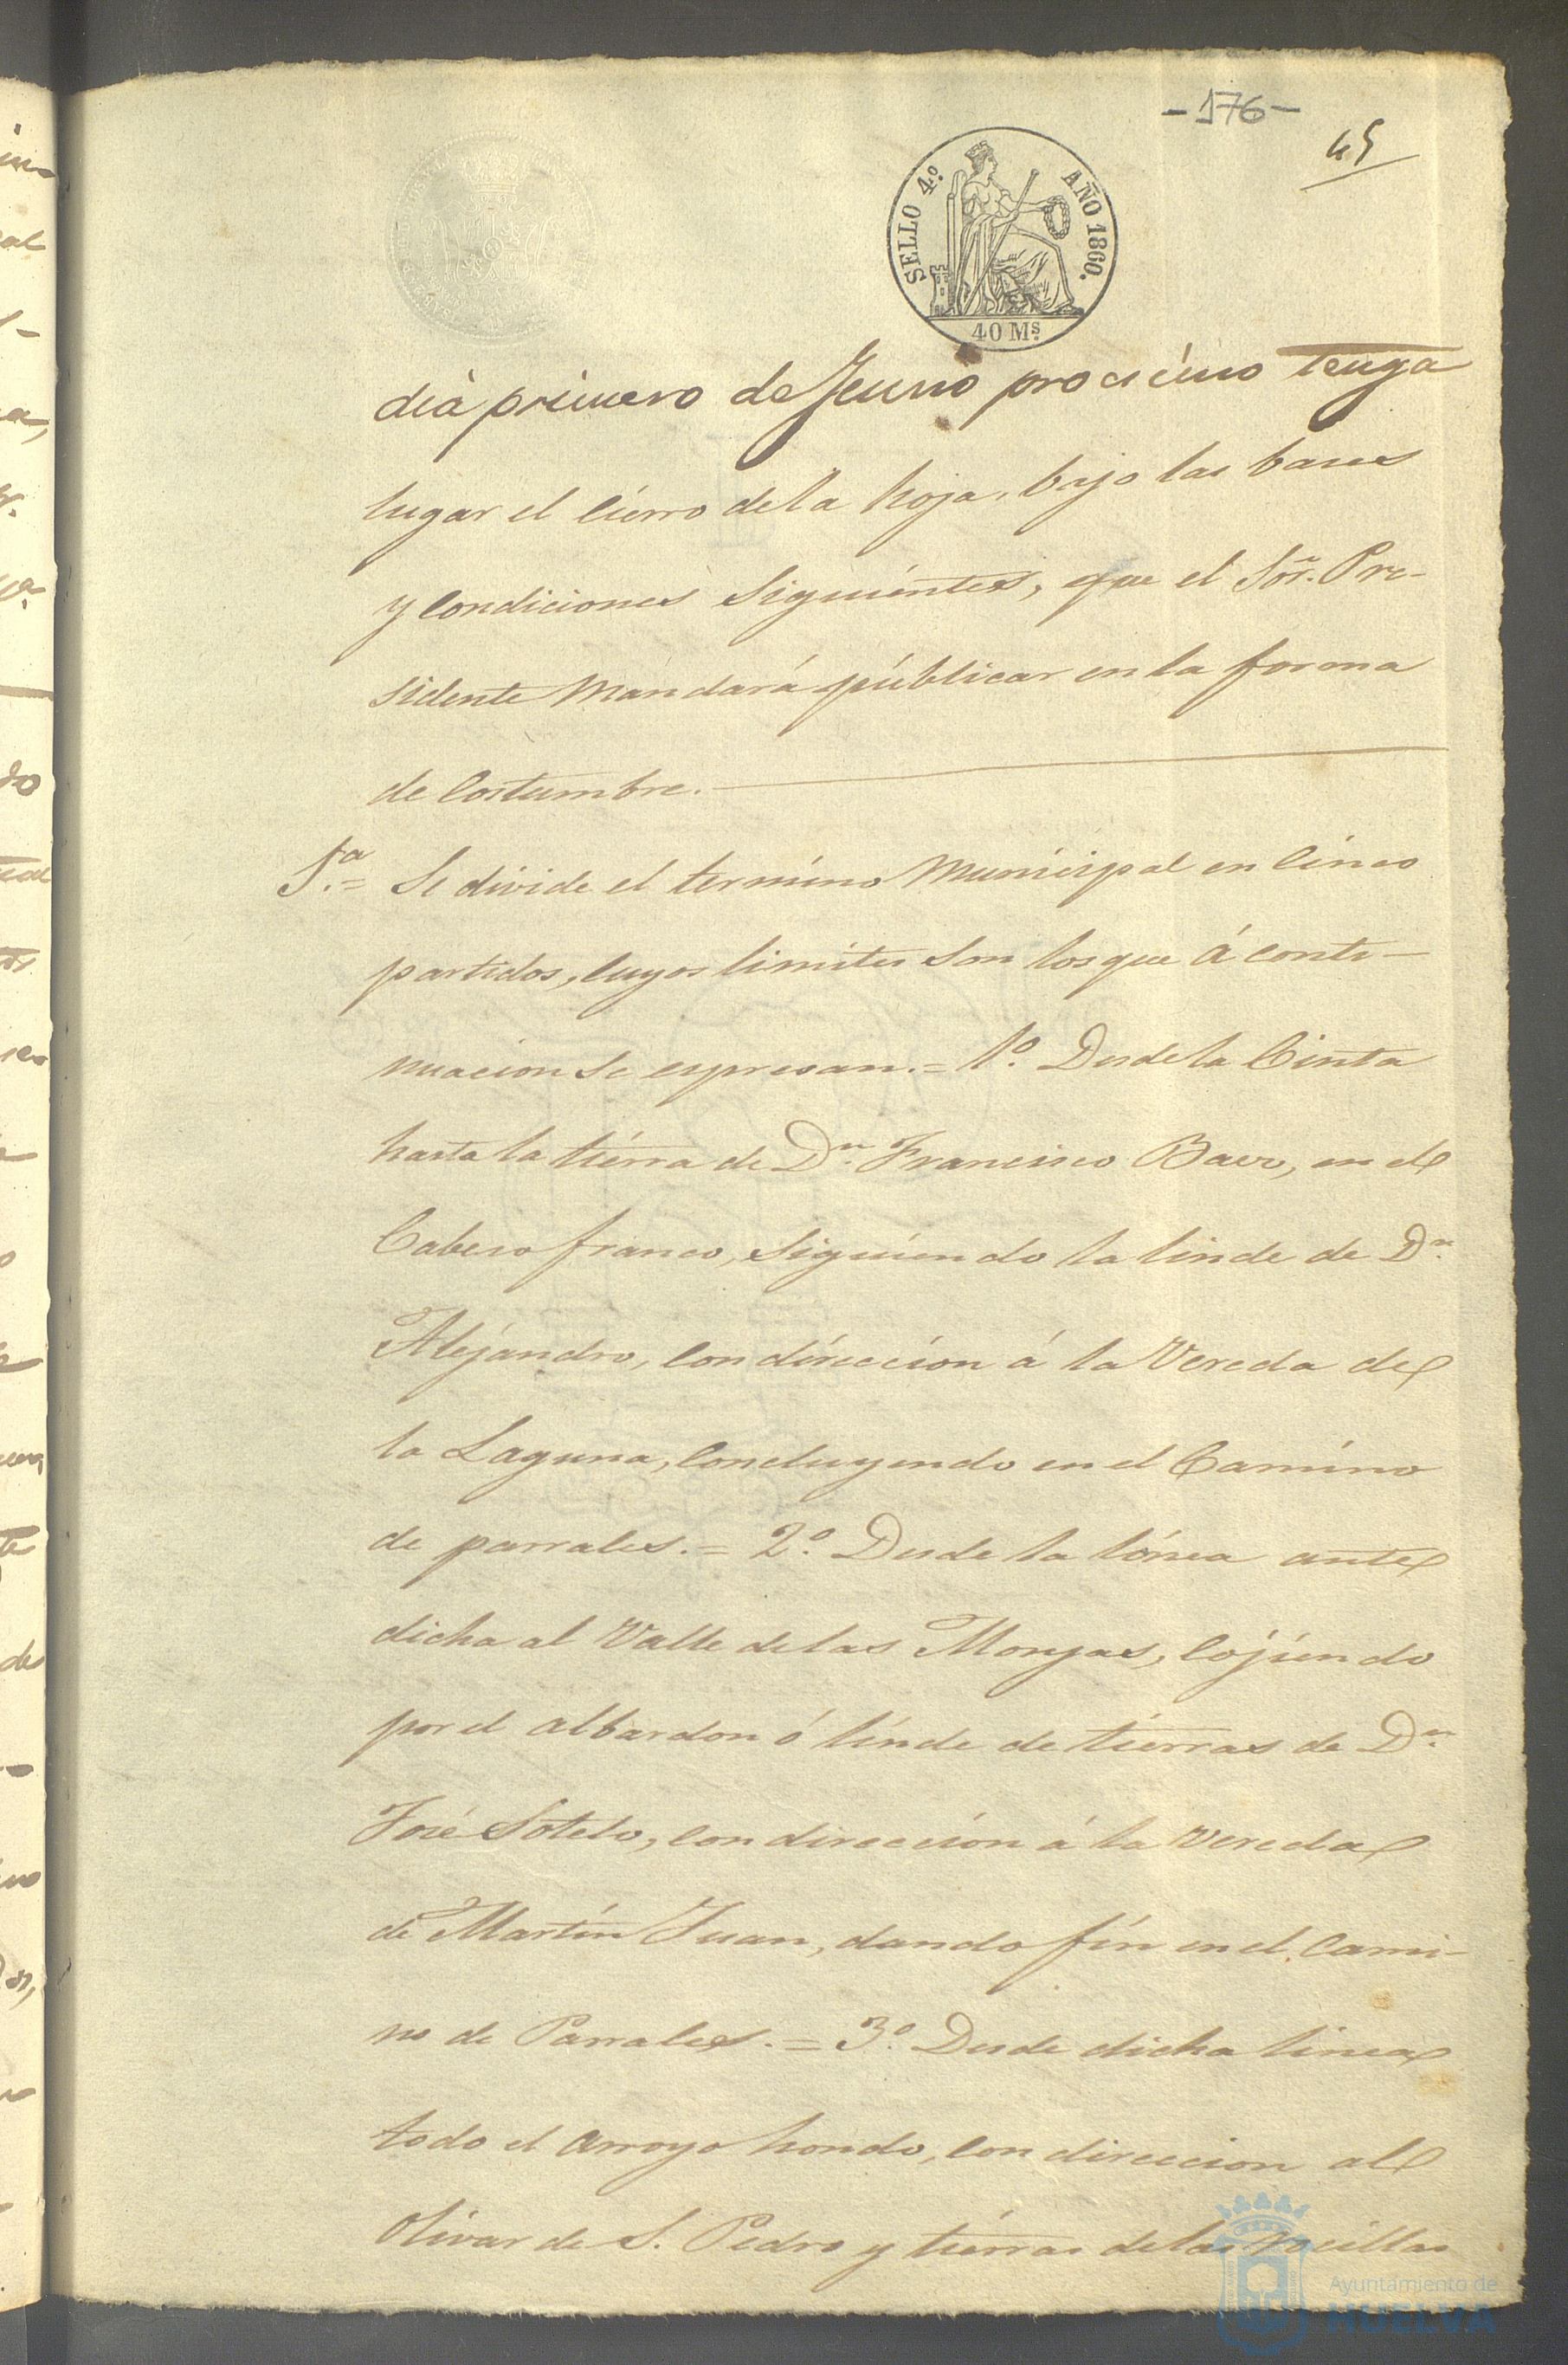 - 176 -
45
SELLO 4º. AÑO 1860.
40 Ms.
dia primero de Junio procsimo tenga
lugar el cierro de la hoja, bajo las bases
y condiciones siguientes, que el Sor. Pre-
sidente mandará públicar en la forma
de costumbre.
1.ª = Se divide el termino Municipal en cinco
partidos, cuyos limites son los que á conti-
nuacion se espresan. = 1º. Desde la Cinta
hasta la tierra de Dn. Francisco Baer, en el
Cabeso franco, siguiendo la linde de Dn.
Alejandro, con dirección á la Vereda de
la Laguna, concluyendo en el Camino
de parrales. = 2º. Desde la línea ante
dicha al Valle de las Monjas, cojiendo
por el albardon ó linde de tierras de Dn.
José Sotelo, con direccion á la vereda
de Martin Juan, dando fin en el cami-
no de Parrales. = 3º. Desde dicha linea
todo el arroyo hondo, con direccion al
Olivar de S. Pedro y tierras de las
Ayuntamiento de
HUELVA